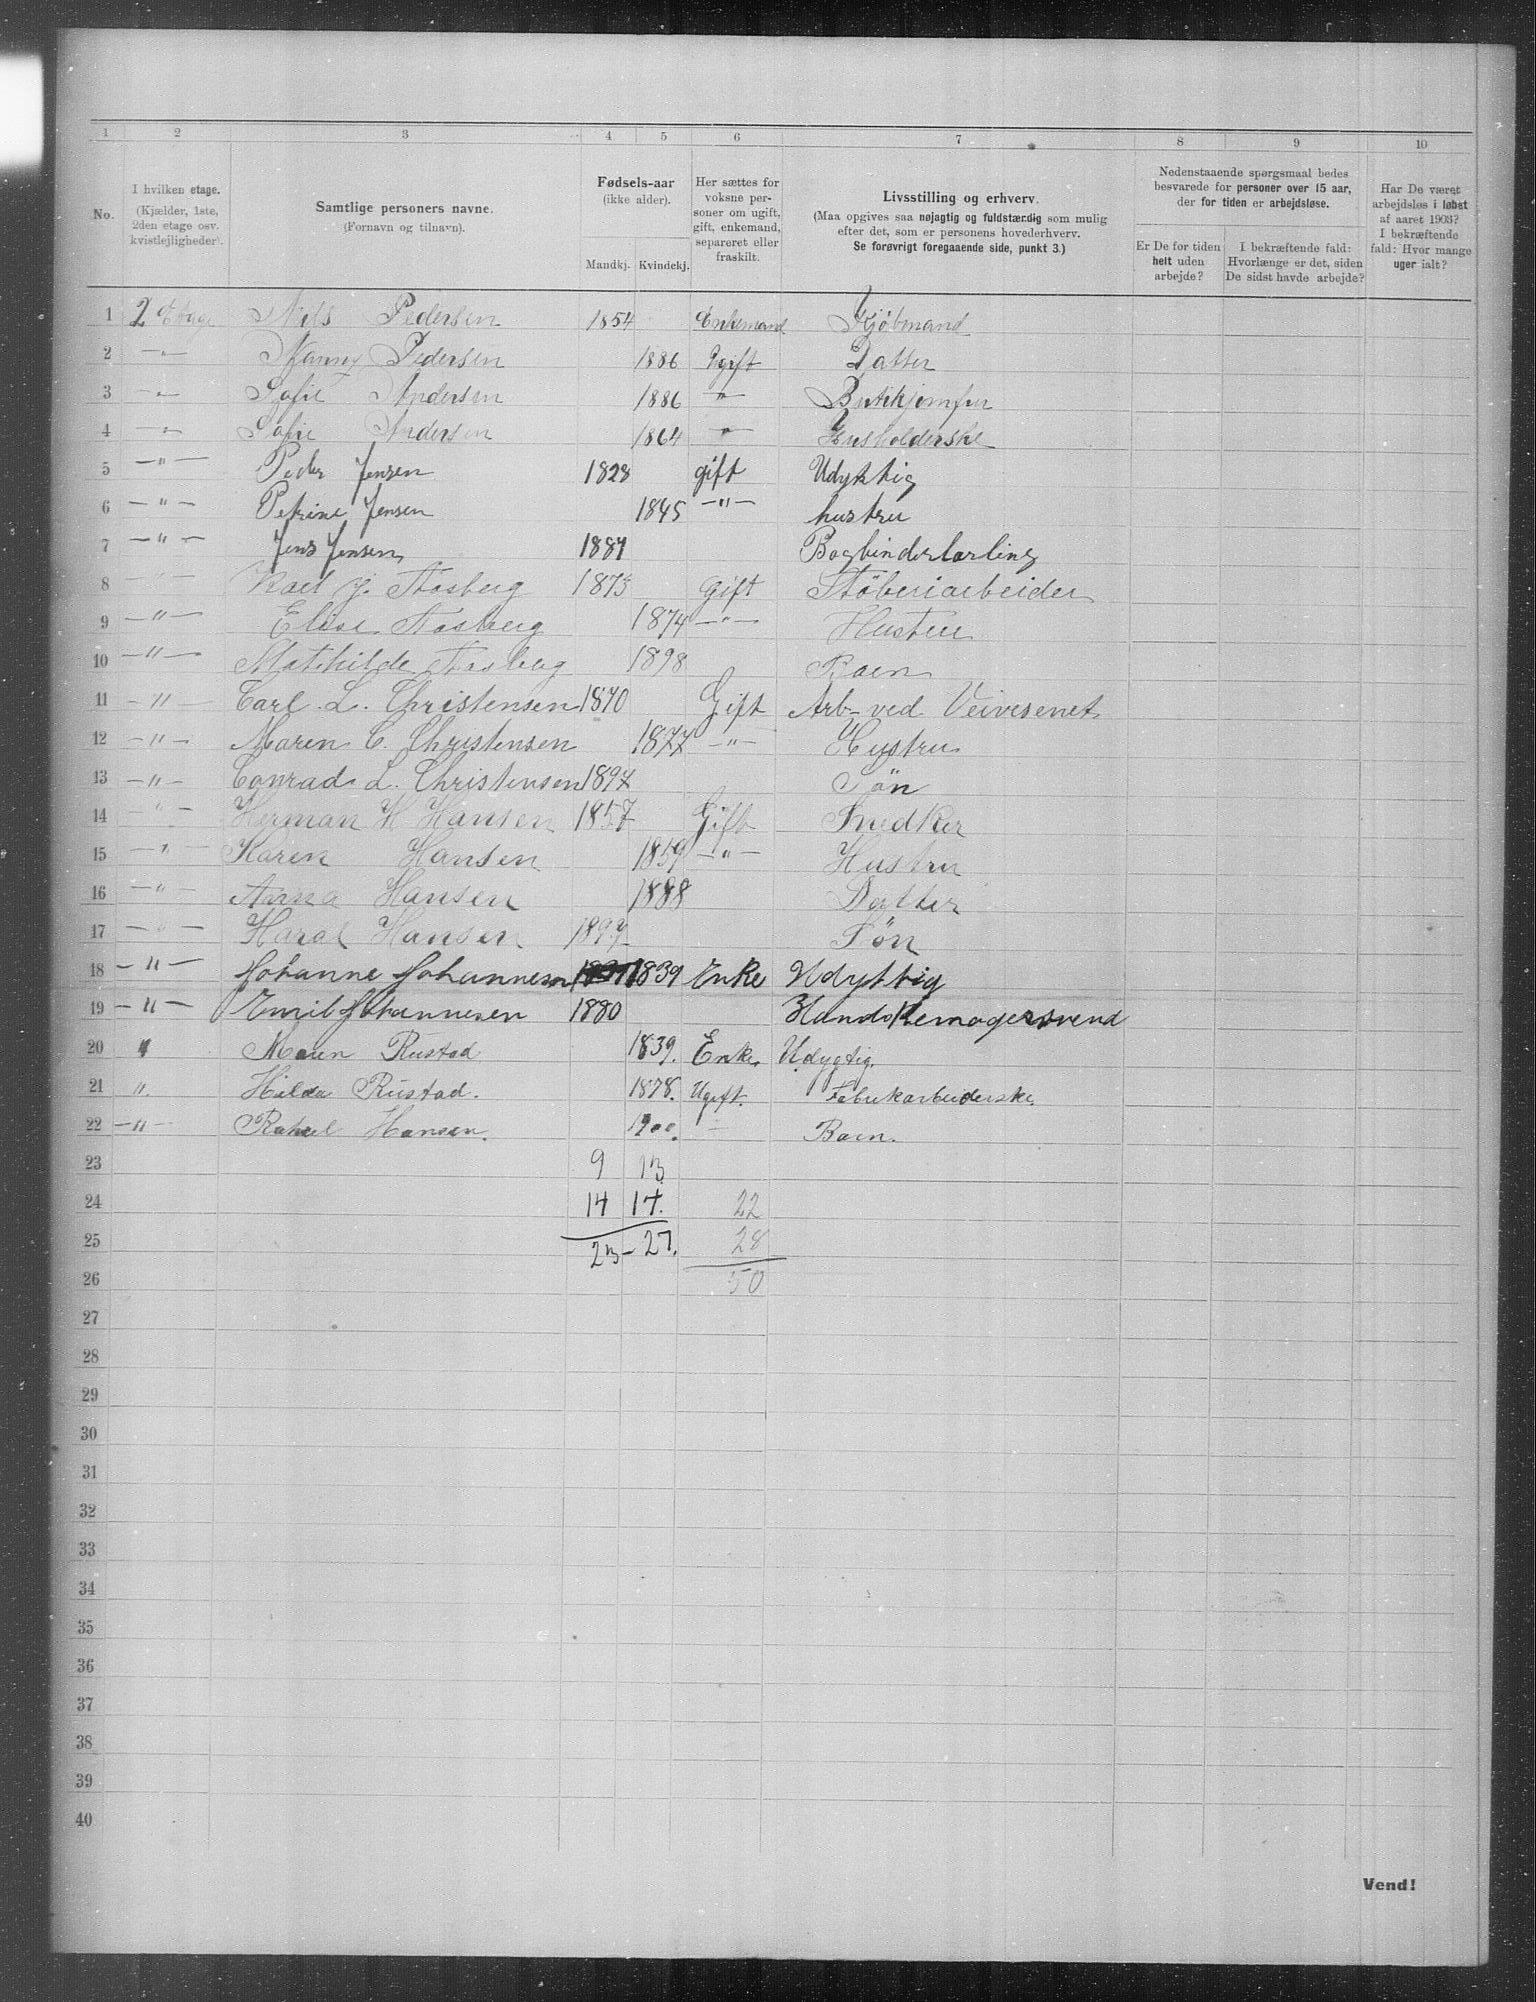 1 2 3 4 5 6 7 8 9 10
No.
I hvilken etage.
(Kjælder, 1ste, 2den etage osv. kvistlejligheder).
Samtlige personers navne.
(Fornavn og tilnavn).
Fødsels-aar
(ikke alder).
Mandkj. Kvindekj.
Her sættes for voksne personer om ugift, gift, enkemand, separeret eller fraskilt.
Livsstilling og erhverv.
(Maa opgives saa nøjagtig og fuldstærdig som mulig
efter det, som er personens hovederhverv.
Se forøvrigt foregaaende side, punkt 3.)
Nedenstaaende spørgsmaal bedes
besvarede for personer over 15 aar,
der for tiden er arbejdsløse.
Er De for tiden helt uden arbejde?
I bekræftende fald: Hvorlænge er det, siden De sidst havde arbejde?
Har De været arbejdsløs i løbet af aaret 1903? I bekræftende fald: Hvor mange uger ialt?
1 2 Etage Nils Pedersen 1854 Enkemand Kjøbmand
2 —"— Fanny Pedersen 1886 Ugift Datter
3 " Sofie Andersen 1886 —"— Butikjomfru
4 " Sofie Andersen 1864 —"— Husholderske
5 —"— Peder Jensen 1828 gift Udyktig
6 —"— Petrine Jensen 1845 —"— hustru
7 —"— Jens Jensen 1887 Bogbinderlærling
8 — — Karl J. Aasberg 1873 Gift Støberiarbeider
9 —"— Elise Aasberg 1874 —"— Hustru
10 —"— Mathilde Aasberg 1898 Barn
11 —"— Carl. L. Christensen 1870 Gift Arb- ved Veivesenet
12 —"— Maren C. Christensen 1877 —"— Hustru
13 —"— Conrad L. Christensen 1897 Søn
14 —"— Herman H Hansen 1857 Gift Snedker
15 —"— Karen Hansen 1859 —"— Hustru
16 —"— Anna Hansen 1888 Datter
17 —"— Haral Hansen 1897 Søn
18 —"— Johanne Johannesen 1839 Enke Udyttig
19 —"— Emil Johannesen 1880 Handskemagersvend
20 " Maren Rustad 1839. Enke. Udygtig.
21 ". Hilda Rustad. 1878. Ugift. Fabrikarbeiderske.
22 —"— Rakel Hansen. 1900. — Barn.
23 9 13
24 14 14. 22
25 23 – 27. 28
26 50
27
28
29
30
31
32
33
34
35
36
37
38
39
40
Vend!